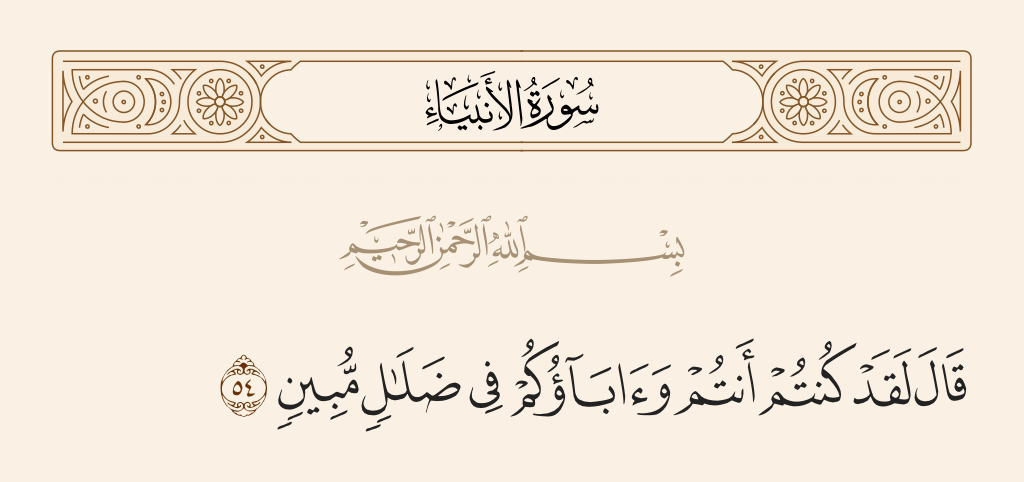 سُورَةُ الأَنبِيَاءِ
بِسْمِ ٱللَّهِ ٱلرَّحْمَٰنِ ٱلرَّحِيمِ
قَالَ لَقَدْ كُنتُمْ أَنتُمْ وَءَابَآؤُكُمْ فِى ضَلَـٰلٍ مُّبِينٍ ٥٤